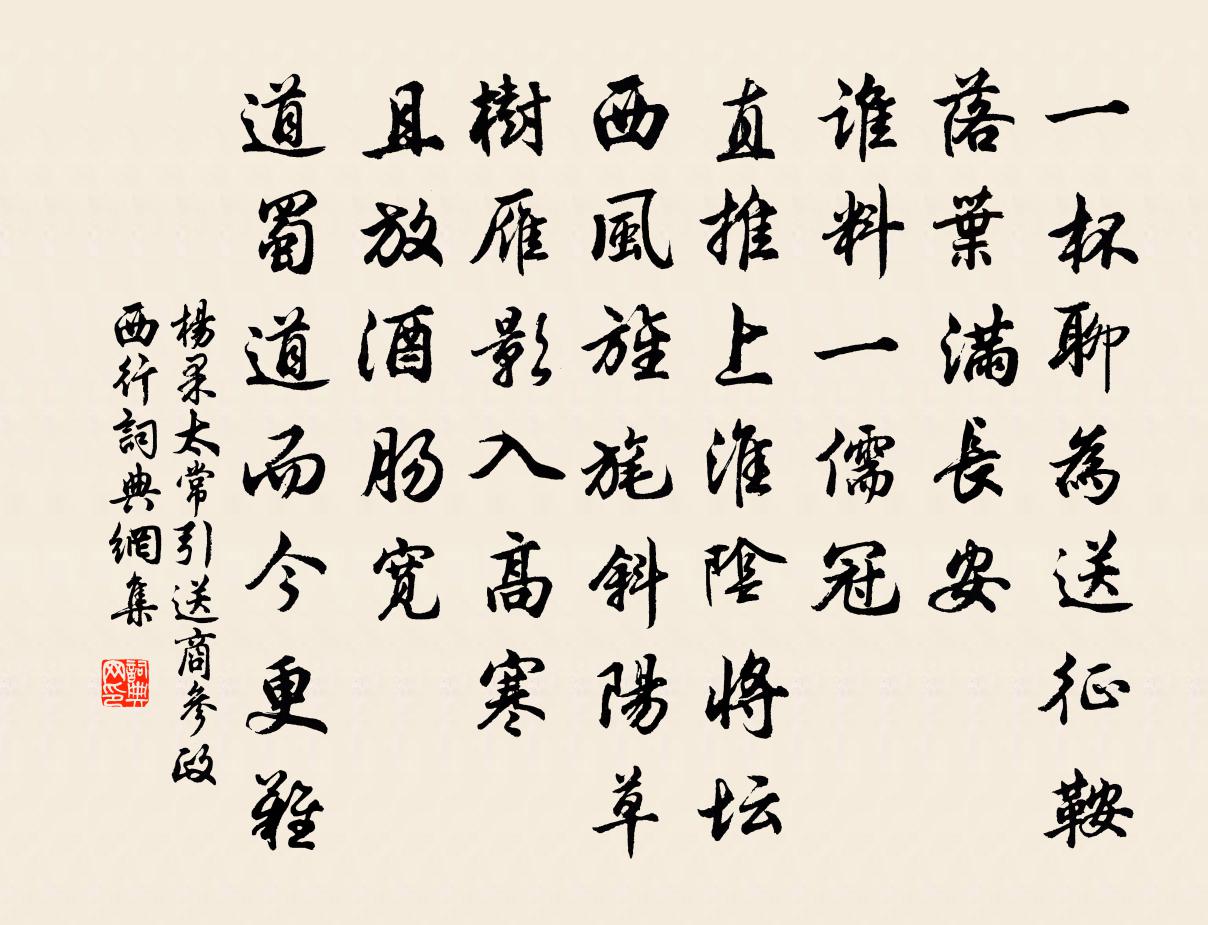 一杯聊為送征鞍
落葉滿長安
誰料一儒冠
直推上淮陰將坛
西風旌旄斜陽草
樹雁影入高寒
且放酒肠寬
道蜀道而今更難
楊果太常引送商參政
西行詞典網集
詞典网印